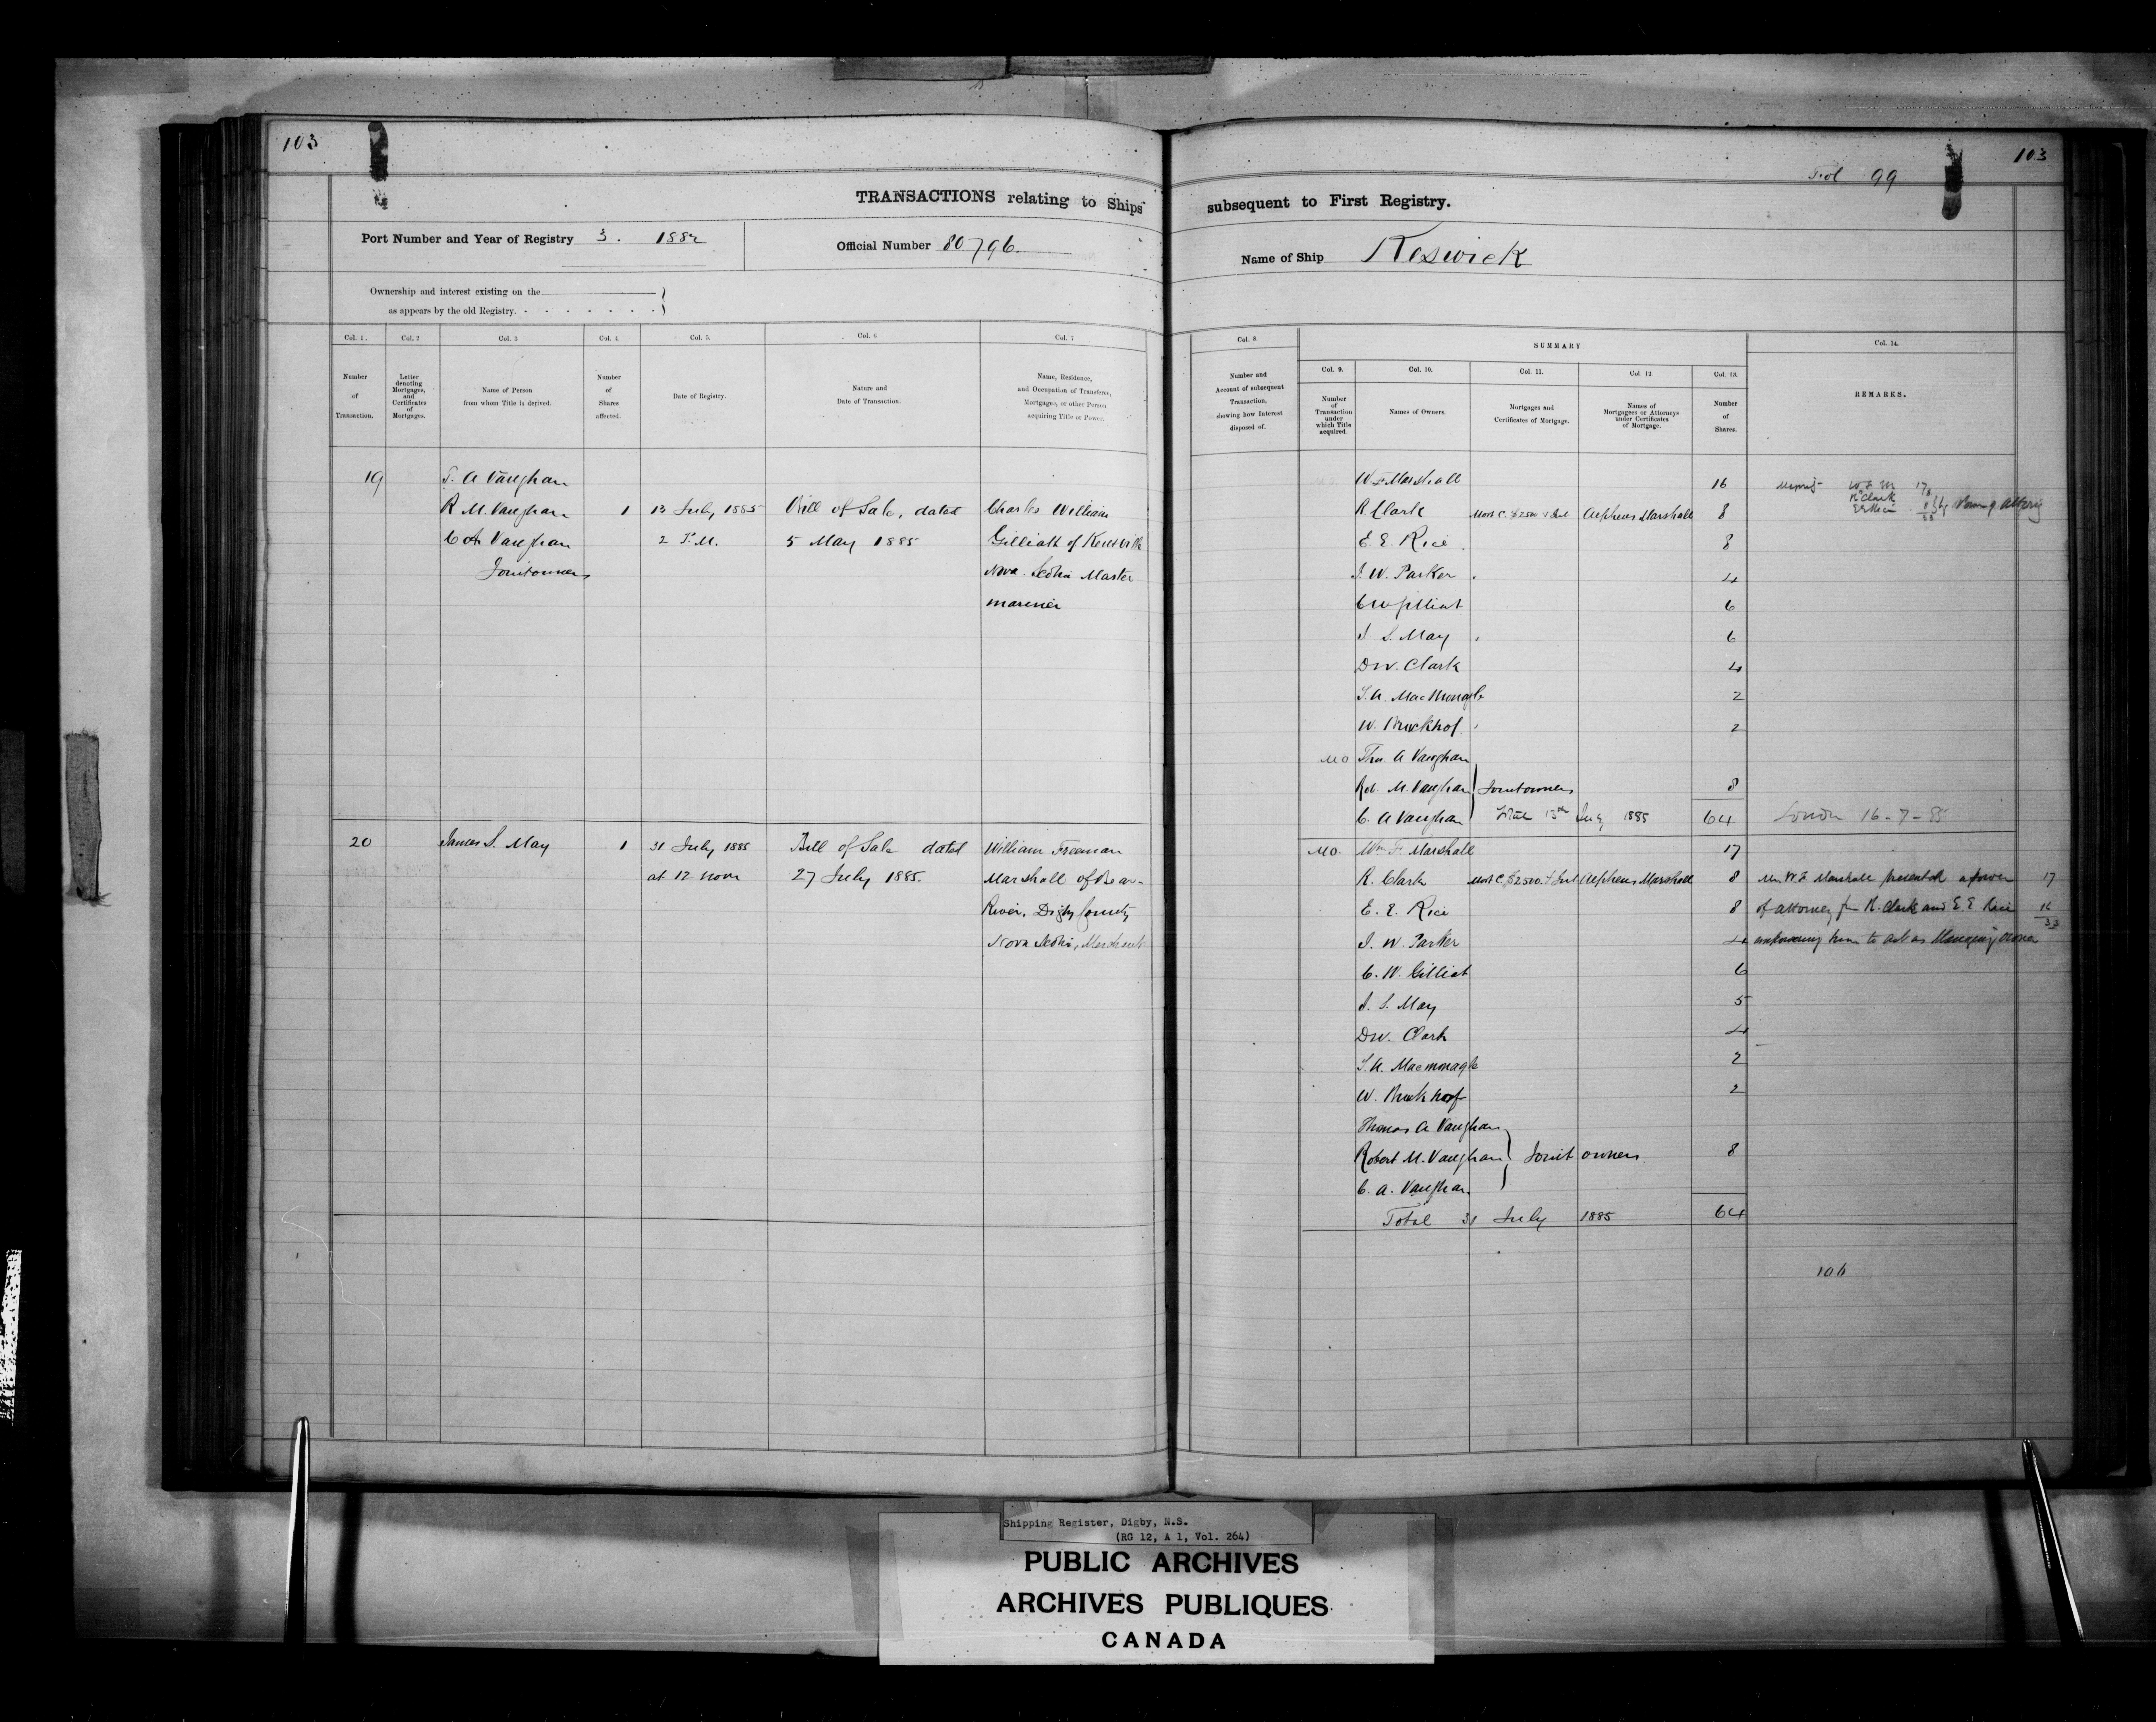 103
103
Fol 99
TRANSACTIONS relating to Ships subsequent to First Registry.
Port Number and Year of Registry 3. 1882
Official Number 80796.
Name of Ship Keswick
Ownership and interest existing on the
as appears by the old Registry.
Col. 1.
Number
of
Transaction.
Col. 2
Letter
denoting
Mortgages,
and
Certificates
of
Mortgages.
Col. 3
Name of Person
from whom Title is derived.
Col. 4.
Number
of
Shares
affected.
Col. 5.
Date of Registry.
Col. 6
Nature and
Date of Transaction.
Col. 7
Name, Residence,
and Occupation of Transferee,
Mortgagee, or other Person
acquiring Title or Power.
Col. 8.
Number and
Account of subsequent
Transaction,
showing how Interest
disposed of.
SUMMARY
Col. 9.
Number
of
Transaction
under
which Title
acquired.
Col. 10.
Names of Owners.
Col. 11.
Mortgages and
Certificates of Mortgage.
Col. 12.
Names of
Mortgagees or Attorneys
under Certificates
of Mortgage.
Col. 13.
Number
of
Shares.
Col. 14.
REMARKS.
19 T. A Vaughan
R M. Vaughan 1 13 July 1885 Bill of Sale, dated Charles William
C A Vaughan 2 P.M. 5 May 1885 Gilliatt of Kentville
Jointowners Nova Scotia Master
mariner
W F Marshall 16 W F M 17
R Clark Mort C. $2500 & Int Alpheus Marshall 8 R Clark
E. E. Rice 8 E E Rice by Power of Attorney
J. W. Parker 4
C W Gilliat 6
J S. May 6
D W. Clark 4
T. A. MacMonagle 2
W. Bruckhof 2
MO Thos. A Vaughan
Rob. M. Vaughan Jointowners 8
C. A Vaughan Total 13th July 1885 64 London 16-7-85
20 James S. May 1 31 July 1885 Bill of Sale dated William Freeman
at 12 noon 27 July 1885. Marshall of Bear
River, Digby County
Nova Scotia, Merchant
MO. Wm F. Marshall 17
R. Clark Mort C. $2500. & Int Alpheus Marshall 8 Mr W. F Marshall presented a power 17
E. E. Rice 8 of attorney from R. Clark and E. E Rice 16
J. W. Parker 4 empowering him to act as Managing owner 33
C. W. Gilliat 6
J. S. May 5
D W. Clark 4
T. A. Macmonagle 2
W. Bruckhoof 2
Thomas A Vaughan
Robert M. Vaughan Joint owners 8
C. A. Vaughan
Total 31 July 1885 64
106
Shipping Register, Digby, N.S.
(RG 12, A 1, Vol. 264)
PUBLIC ARCHIVES
ARCHIVES PUBLIQUES
CANADA